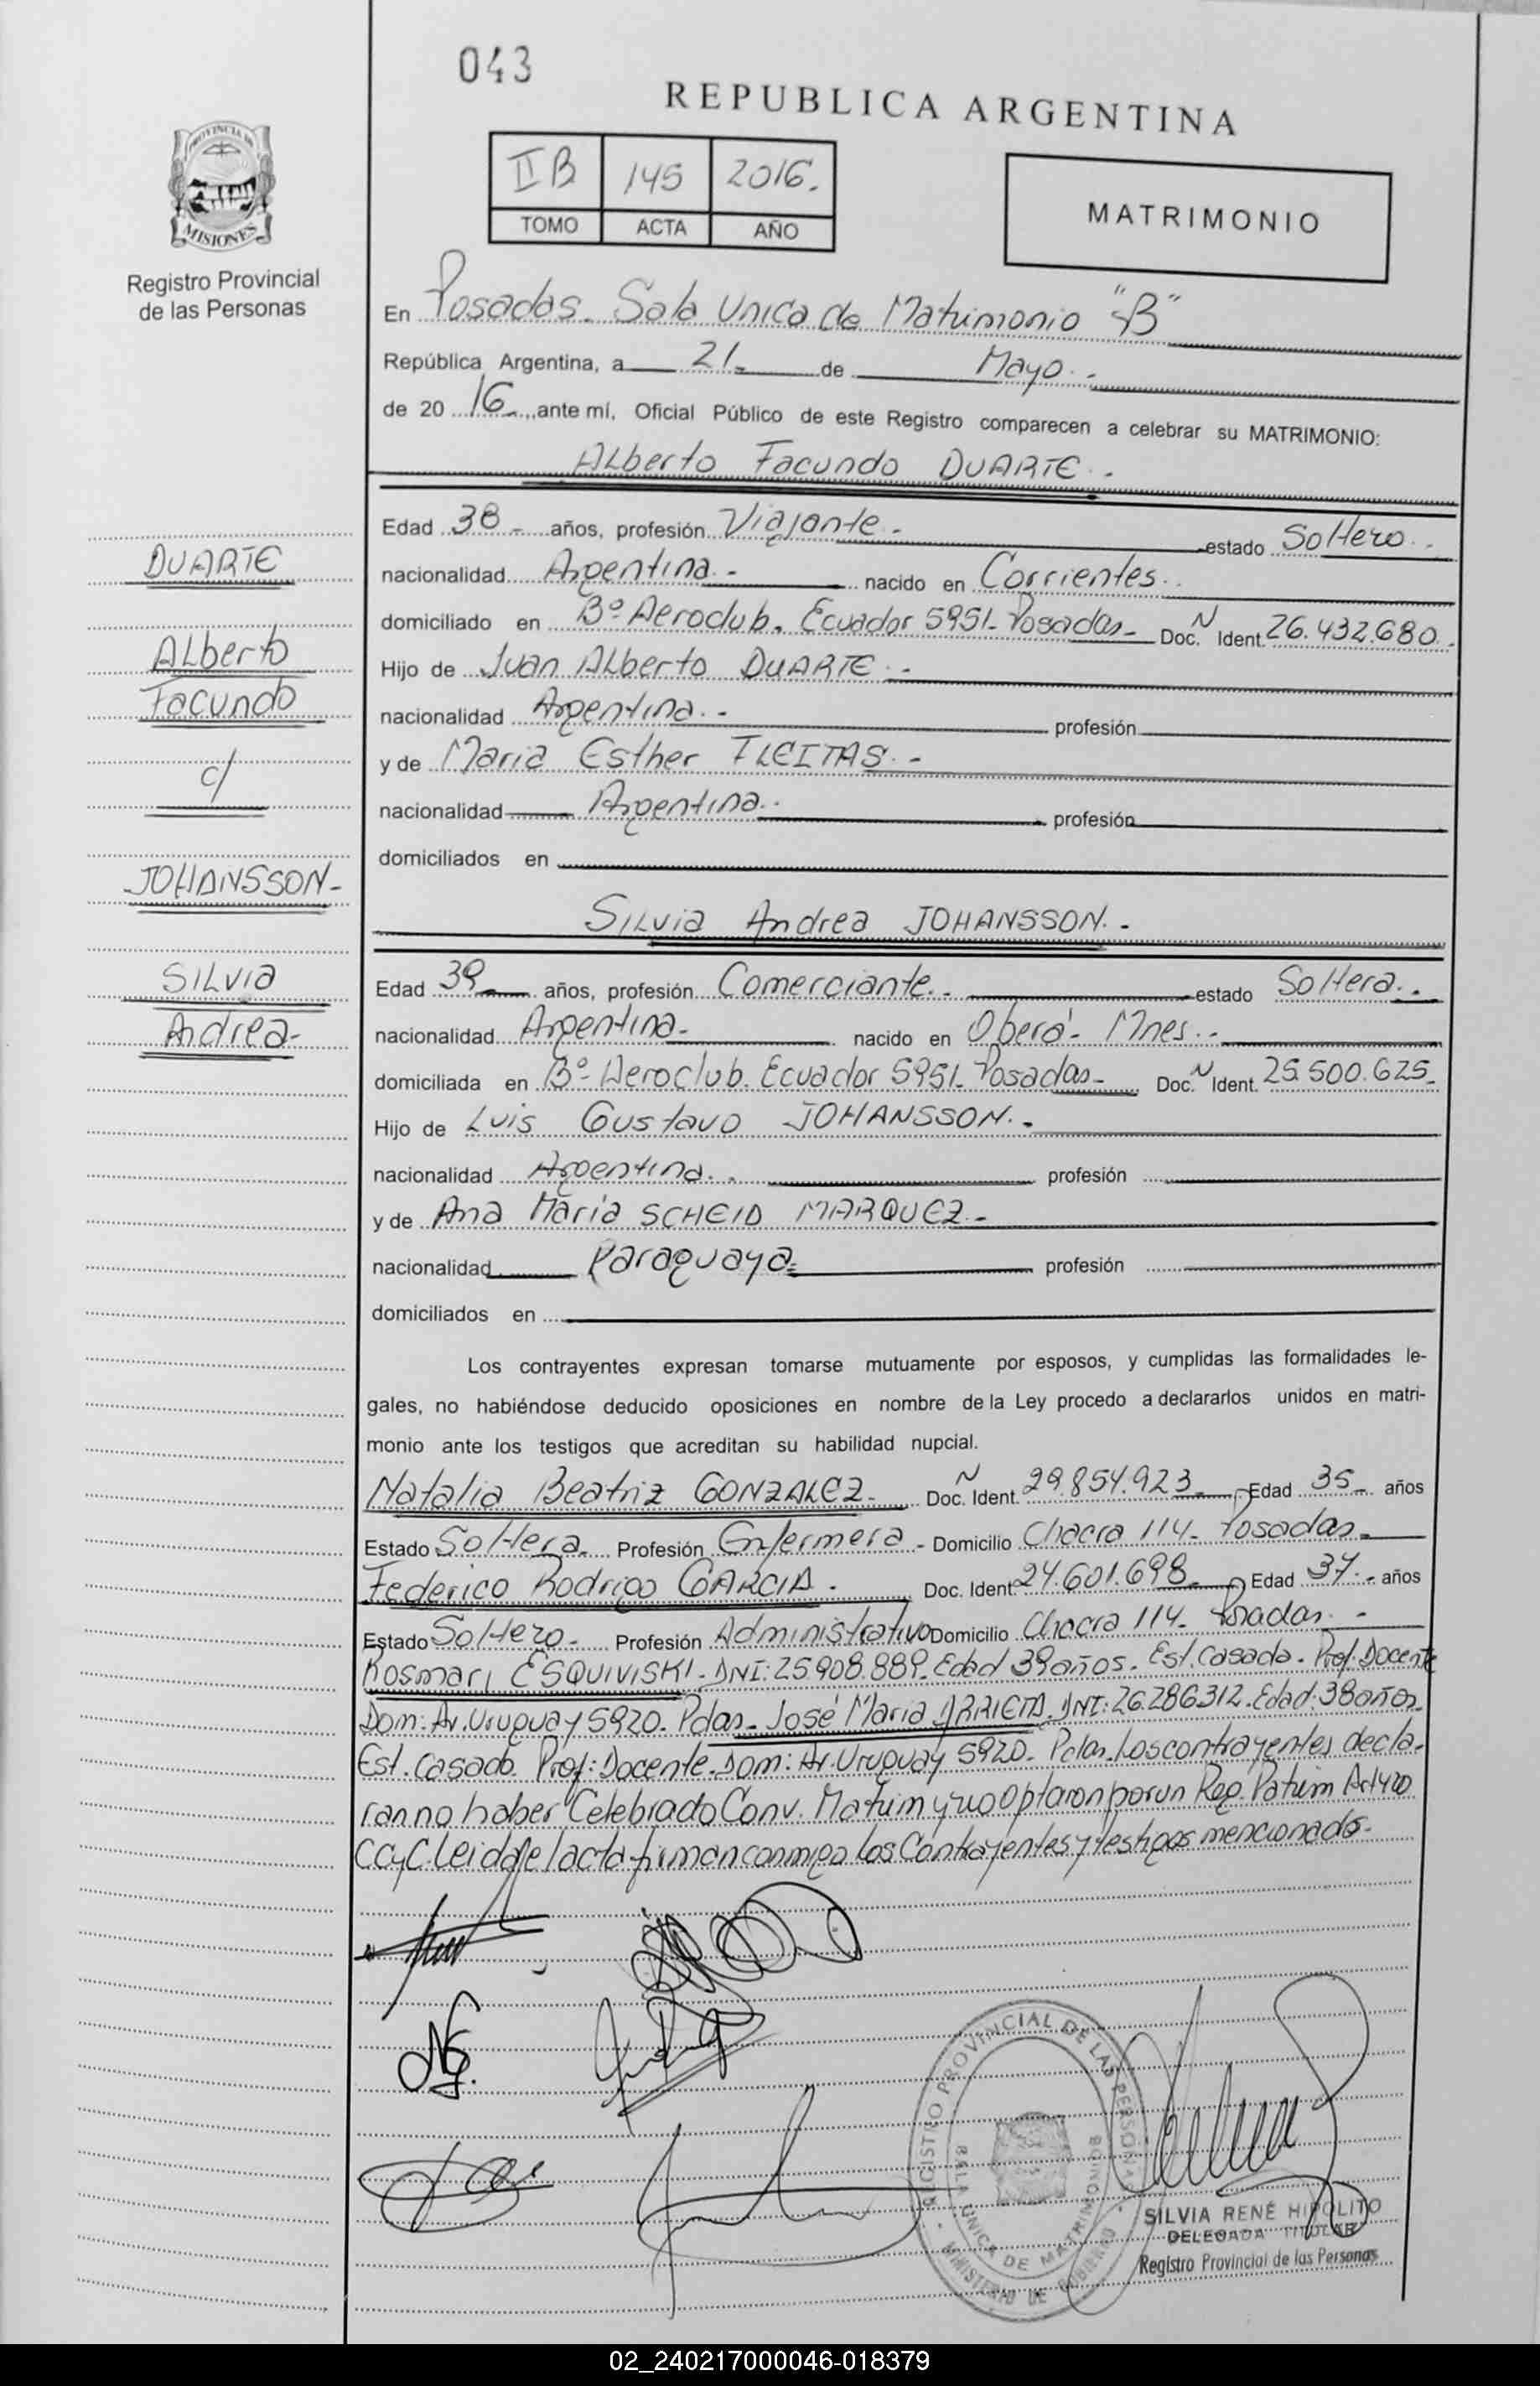 043
REPUBLICA ARGENTINA
PROVINCIA DE
MISIONES
Registro Provincial
de las Personas
II B 145 2016.
TOMO ACTA AÑO
MATRIMONIO
En Posadas. Sala Unica de Matrimonio "B"
República Argentina, a 21 de Mayo.-
de 20 16 ante mí, Oficial Público de este Registro comparecen a celebrar su MATRIMONIO:
Alberto Facundo DUARTE.-
Edad 38- años, profesión Viajante.- estado Soltero.-
nacionalidad Argentina.- nacido en Corrientes.
domiciliado en Bº Aeroclub. Ecuador 5951- Posadas- Doc. N Ident. 26.432.680.
Hijo de Juan Alberto DUARTE.-
nacionalidad Argentina.- profesión
y de Maria Esther FLEITAS.-
nacionalidad Argentina.- profesión
domiciliados en
Silvia Andrea JOHANSSON.-
Edad 39 años, profesión Comerciante.- estado Soltera.-
nacionalidad Argentina- nacido en Oberá- Mnes.-
domiciliada en Bº Aeroclub. Ecuador 5951- Posadas- Doc. N Ident. 25.500.625-
Hijo de Luis Gustavo JOHANSSON.-
nacionalidad Argentina.- profesión
y de Ana María SCHEID MARQUEZ.-
nacionalidad Paraguaya profesión
domiciliados en
DUARTE
Alberto
Facundo
c/
JOHANSSON-
Silvia
Andrea-
Los contrayentes expresan tomarse mutuamente por esposos, y cumplidas las formalidades le-
gales, no habiéndose deducido oposiciones en nombre de la Ley procedo a declararlos unidos en matri-
monio ante los testigos que acreditan su habilidad nupcial.
Natalia Beatriz GONZALEZ- Doc. N Ident. 29.854.923 Edad 35- años
Estado Soltera. Profesión Enfermera- Domicilio Chacra 114- Posadas-
Federico Rodrigo GARCIA. Doc. Ident. 24.601.698 Edad 37.- años
Estado Soltero- Profesión Administrativo Domicilio Chacra 114- Posadas.-
Rosmari ESQUIVISKI- DNI: 25.908.889. Edad 39 años. Est. Casada. Prof: Docente
Dom: Av. Uruguay 5920. Pdas- José Maria ARRIETA. DNI: 26.286.312. Edad: 38 años
Est. Casado. Prof: Docente. Dom: Av. Uruguay 5920. Pdas. Los contrayentes decla-
ran no haber Celebrado Conv. Matrim y no Optaron por un Reg. Patrim Art 420
CCyC. Leida el acta firman conmigo los Contrayentes y testigos mencionados-
REGISTRO PROVINCIAL DE LAS PERSONAS
SALA UNICA DE MATRIMONIOS
MINISTERIO DE GOBIERNO
SILVIA RENÉ HIPOLITO
DELEGADA TITULAR
Registro Provincial de las Personas
02_240217000046-018379